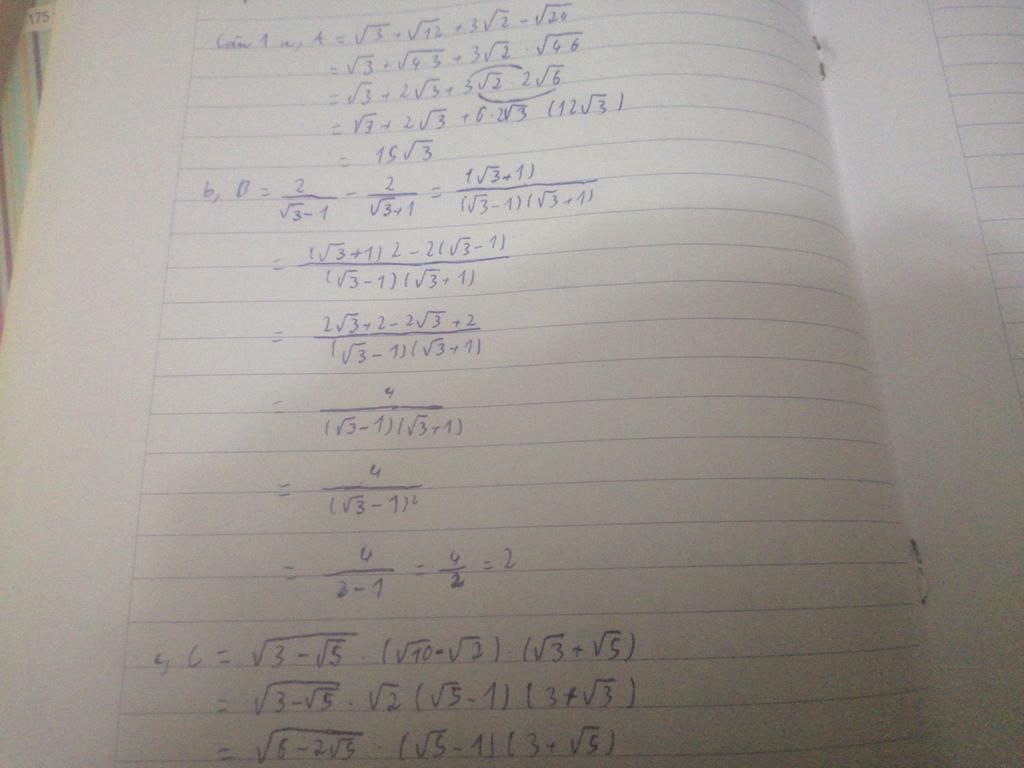 175
Câu 1 a, A = √3 + √12 + 3√2 - √24
= √3 + √4 3 + 3√2 · √4 6
= √3 + 2√3 + 3√2 · 2√6
= √3 + 2√3 + 6·2√3 (12√3)
= 15√3
b, B = 2/(√3-1) - 2/(√3+1) = (√3+1)/((√3-1)(√3+1))
= ((√3+1)2 - 2(√3-1))/((√3-1)(√3+1))
= (2√3+2-2√3+2)/((√3-1)(√3+1))
= 4/((√3-1)(√3+1))
= 4/(√3-1)²
= 4/(3-1) = 4/2 = 2
c, C = √(3-√5) · (√10-√2) · (√3+√5)
= √(3-√5) · √2 (√5-1) (3+√3)
= √(6-2√5) · (√5-1) (3+√5)